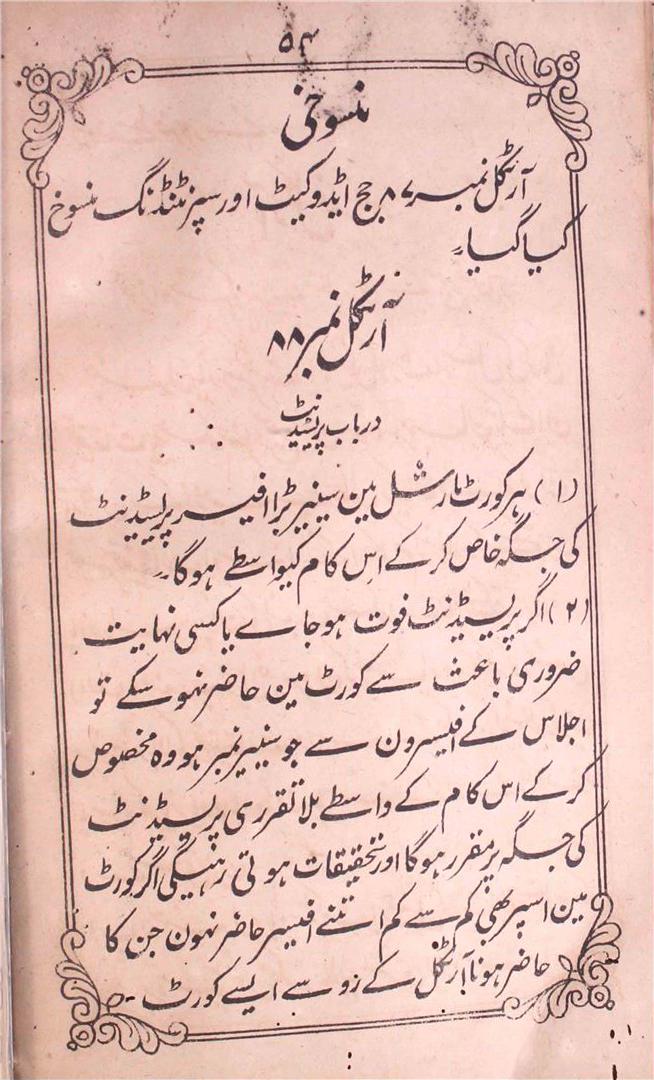 ۵۴
منسوخی
آرٹکل نمبر ۸۷ جج ایڈوکیٹ اور سپرنٹنڈنگ منسوخ
کیا گیا۔
آرٹکل نمبر ۸۸
در باب پریسیڈنٹ
(۱) ہر کورٹ مارشل مین سینیر بڑا افیسر پریسیڈنٹ
کی جگہ خاص کر کے اس کام کیواسطے ہوگا۔
(۲) اگر پریسیڈنٹ فوت ہو جاے یا کسی نہایت
ضروری باعث سے کورٹ مین حاضر نہو سکے تو
اجلاس کے افیسرون سے جو سنیر نمبر ہو وہ مخصوص
کر کے اس کام کے واسطے بلا تقرری پریسیڈنٹ
کی جگہ پر مقرر ہوگا اور تحقیقات ہوتی رہیگی اگر کورٹ
مین اسپر بھی کم سے کم اتنے افیسر حاضر نہون جن کا
حاضر ہونا آرٹکل کے رو سے ایسے کورٹ -